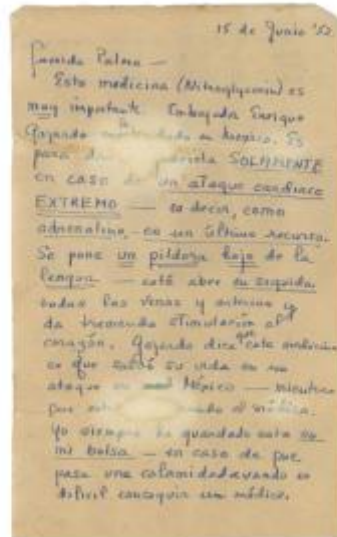 15 de Junio '52
Querida Palma —
Esta medicina (Nitroglycerin) es
muy importante. Embajada Enrique
Gajardo en Mexico. Es
para Gabriela SOLAMENTE
en caso de un ataque cardiaco
EXTREMO — es decir, como
adrenalina, es un último recurso.
Se pone un pildora bajo de la
lengua — esto abre en seguida
todas las venas y arterias y
da tremenda stimulación al
corazón. Gajardo dice que esta medicina
es que salvó su vida en un
ataque en México — mientras
por el médico.
Yo siempre he guardado esta en
mi bolsa — en caso de que
pasa una calamidad cuando es
dificil conseguir un médico.